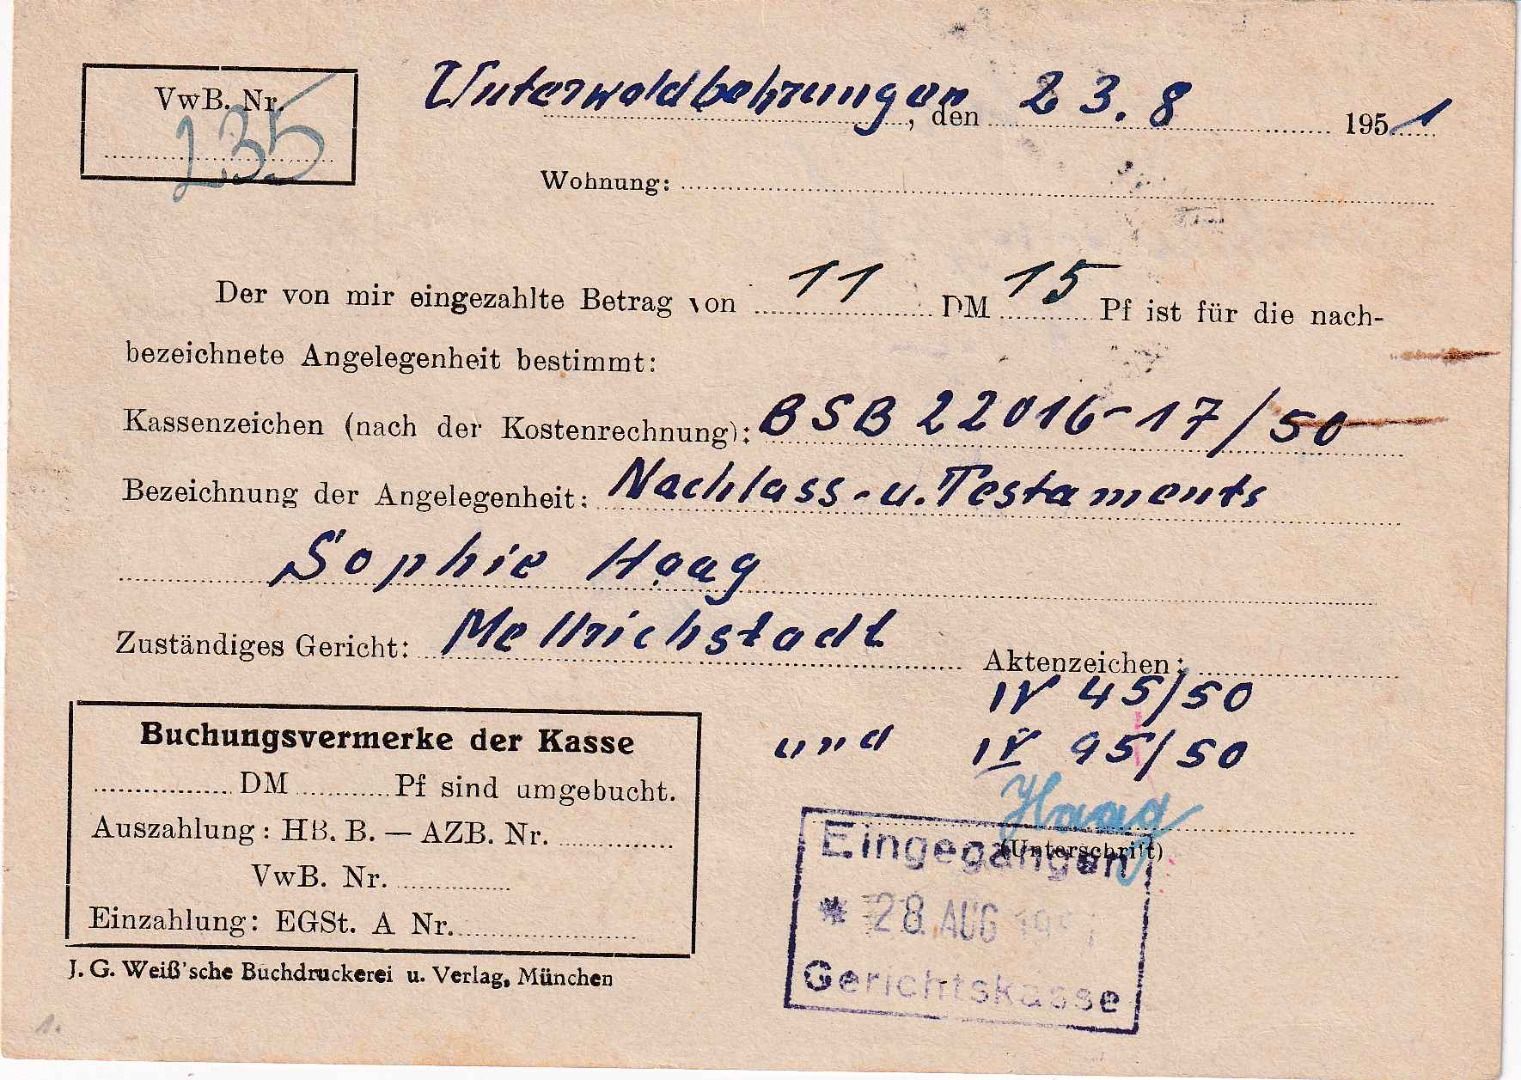 VwB. Nr.
235
Unterwaldbehrungen, den 23. 8 1951
Wohnung:
Der von mir eingezahlte Betrag von 11 DM 15 Pf ist für die nach-
bezeichnete Angelegenheit bestimmt:
Kassenzeichen (nach der Kostenrechnung): BSB 22016-17/50
Bezeichnung der Angelegenheit: Nachlass- u. Testaments
Sophie Haag
Zuständiges Gericht: Mellrichstadt Aktenzeichen:
IV 45/50
und IV 95/50
Haag
(Unterschrift)
Buchungsvermerke der Kasse
DM Pf sind umgebucht.
Auszahlung: HB. B. — AZB. Nr.
VwB. Nr.
Einzahlung: EGSt. A Nr.
J. G. Weiß'sche Buchdruckerei u. Verlag, München
Eingegangen
* 28. AUG 195
Gerichtskasse
1.